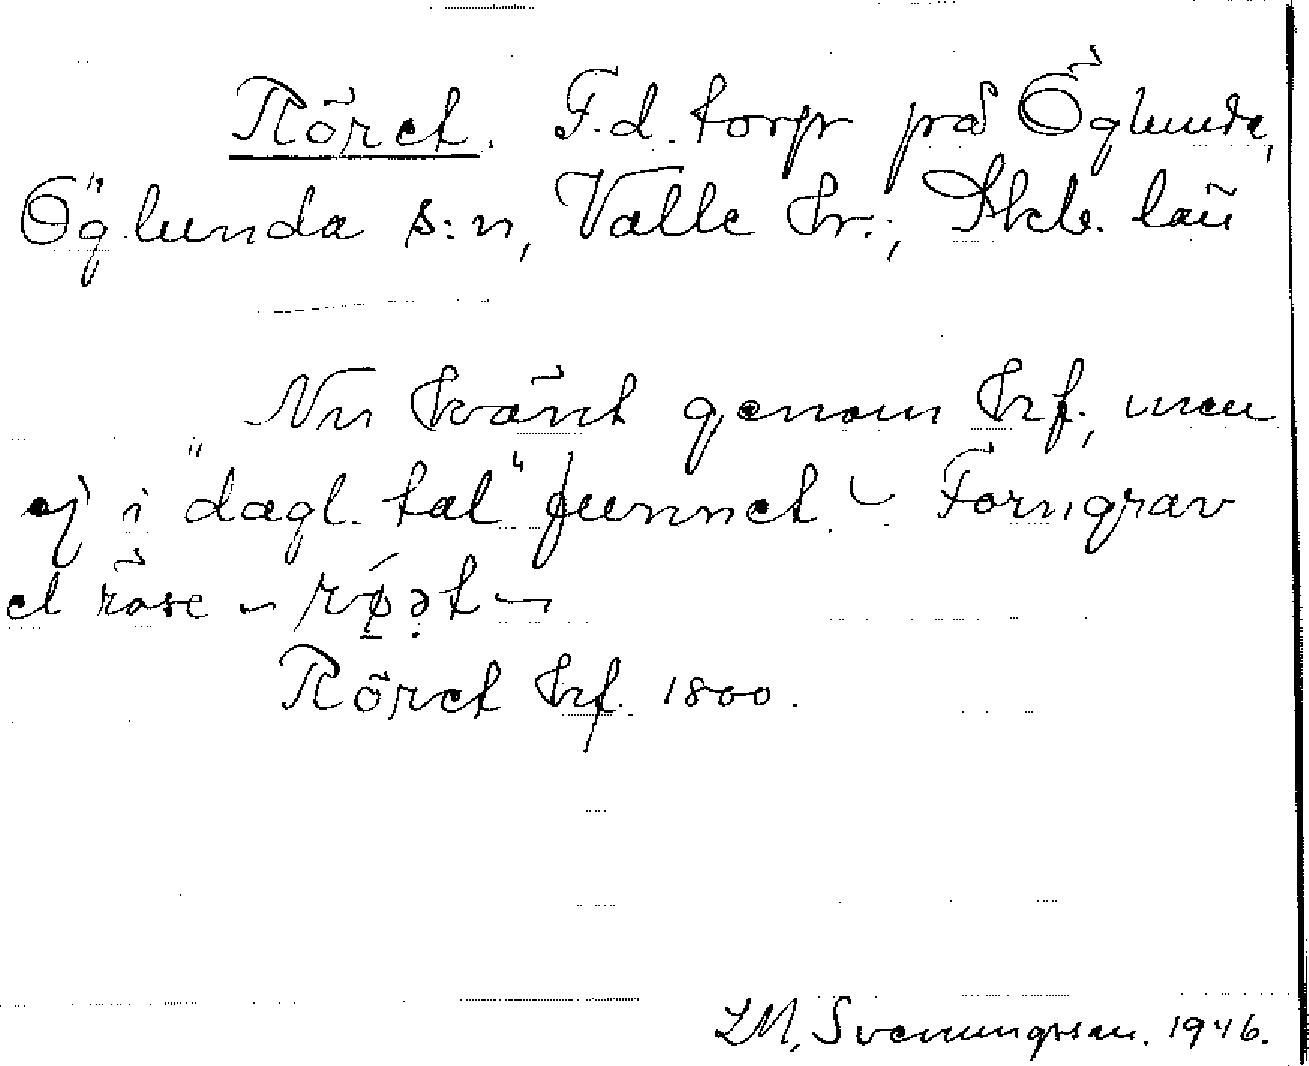 Röret. F.d. torp på Öglunda,
Öglunda s:n, Valle hr.; Skbg. län
Nu känt genom hf., men
ej i "dagl. tal" funnet. - Forngrav
el röse - rǿət -
Röret hf. 1800.
LM, Svenungsson. 1946.